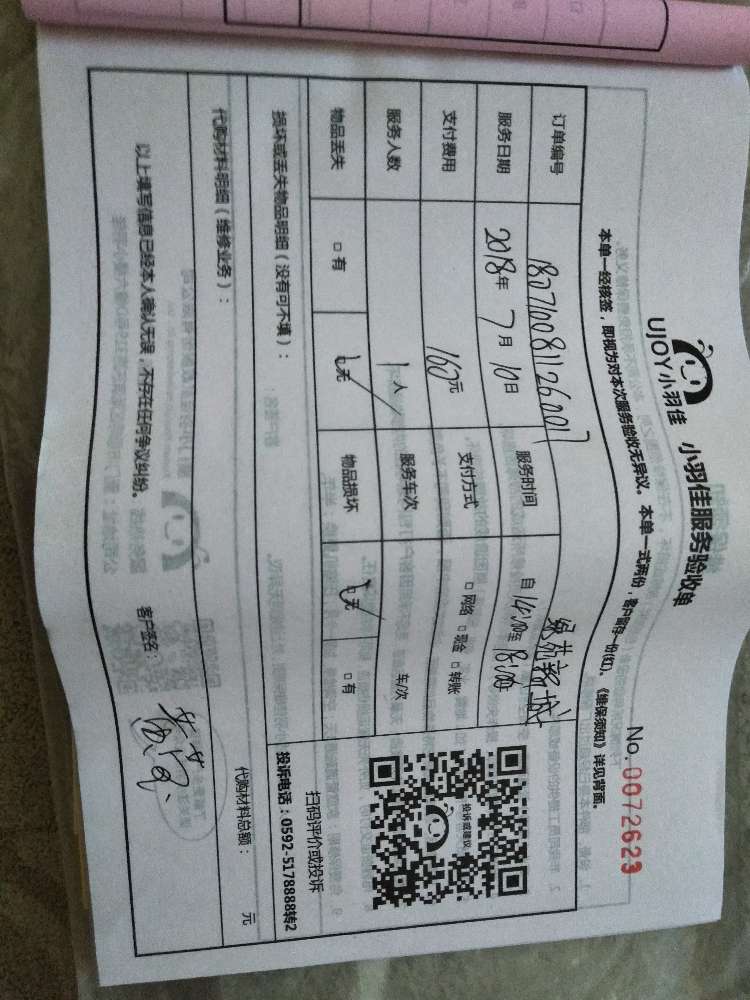 UJOY小羽佳 小羽佳服务验收单
No. 0072623
本单一经核签，即视为对本次服务验收无异议。本单一式两份，客户留存一份(红)。《维保须知》详见背面。
订单编号 1807100811260017
服务日期 2018年7月10日 服务时间 自14:00至18:00
支付费用 160元 支付方式 □网络 □现金 □转账
服务人数 1人 服务车次 车/次
物品丢失 □有 □无 物品损坏 □无 □有
损坏或丢失物品明细（没有可不填）：
扫码评价或投诉
投诉电话：0592-5178888转2
投诉或建议
代购材料明细（维修业务）：
代购材料总额： 元
以上填写信息已经本人确认无误，不存在任何争议纠纷。 客户签名：